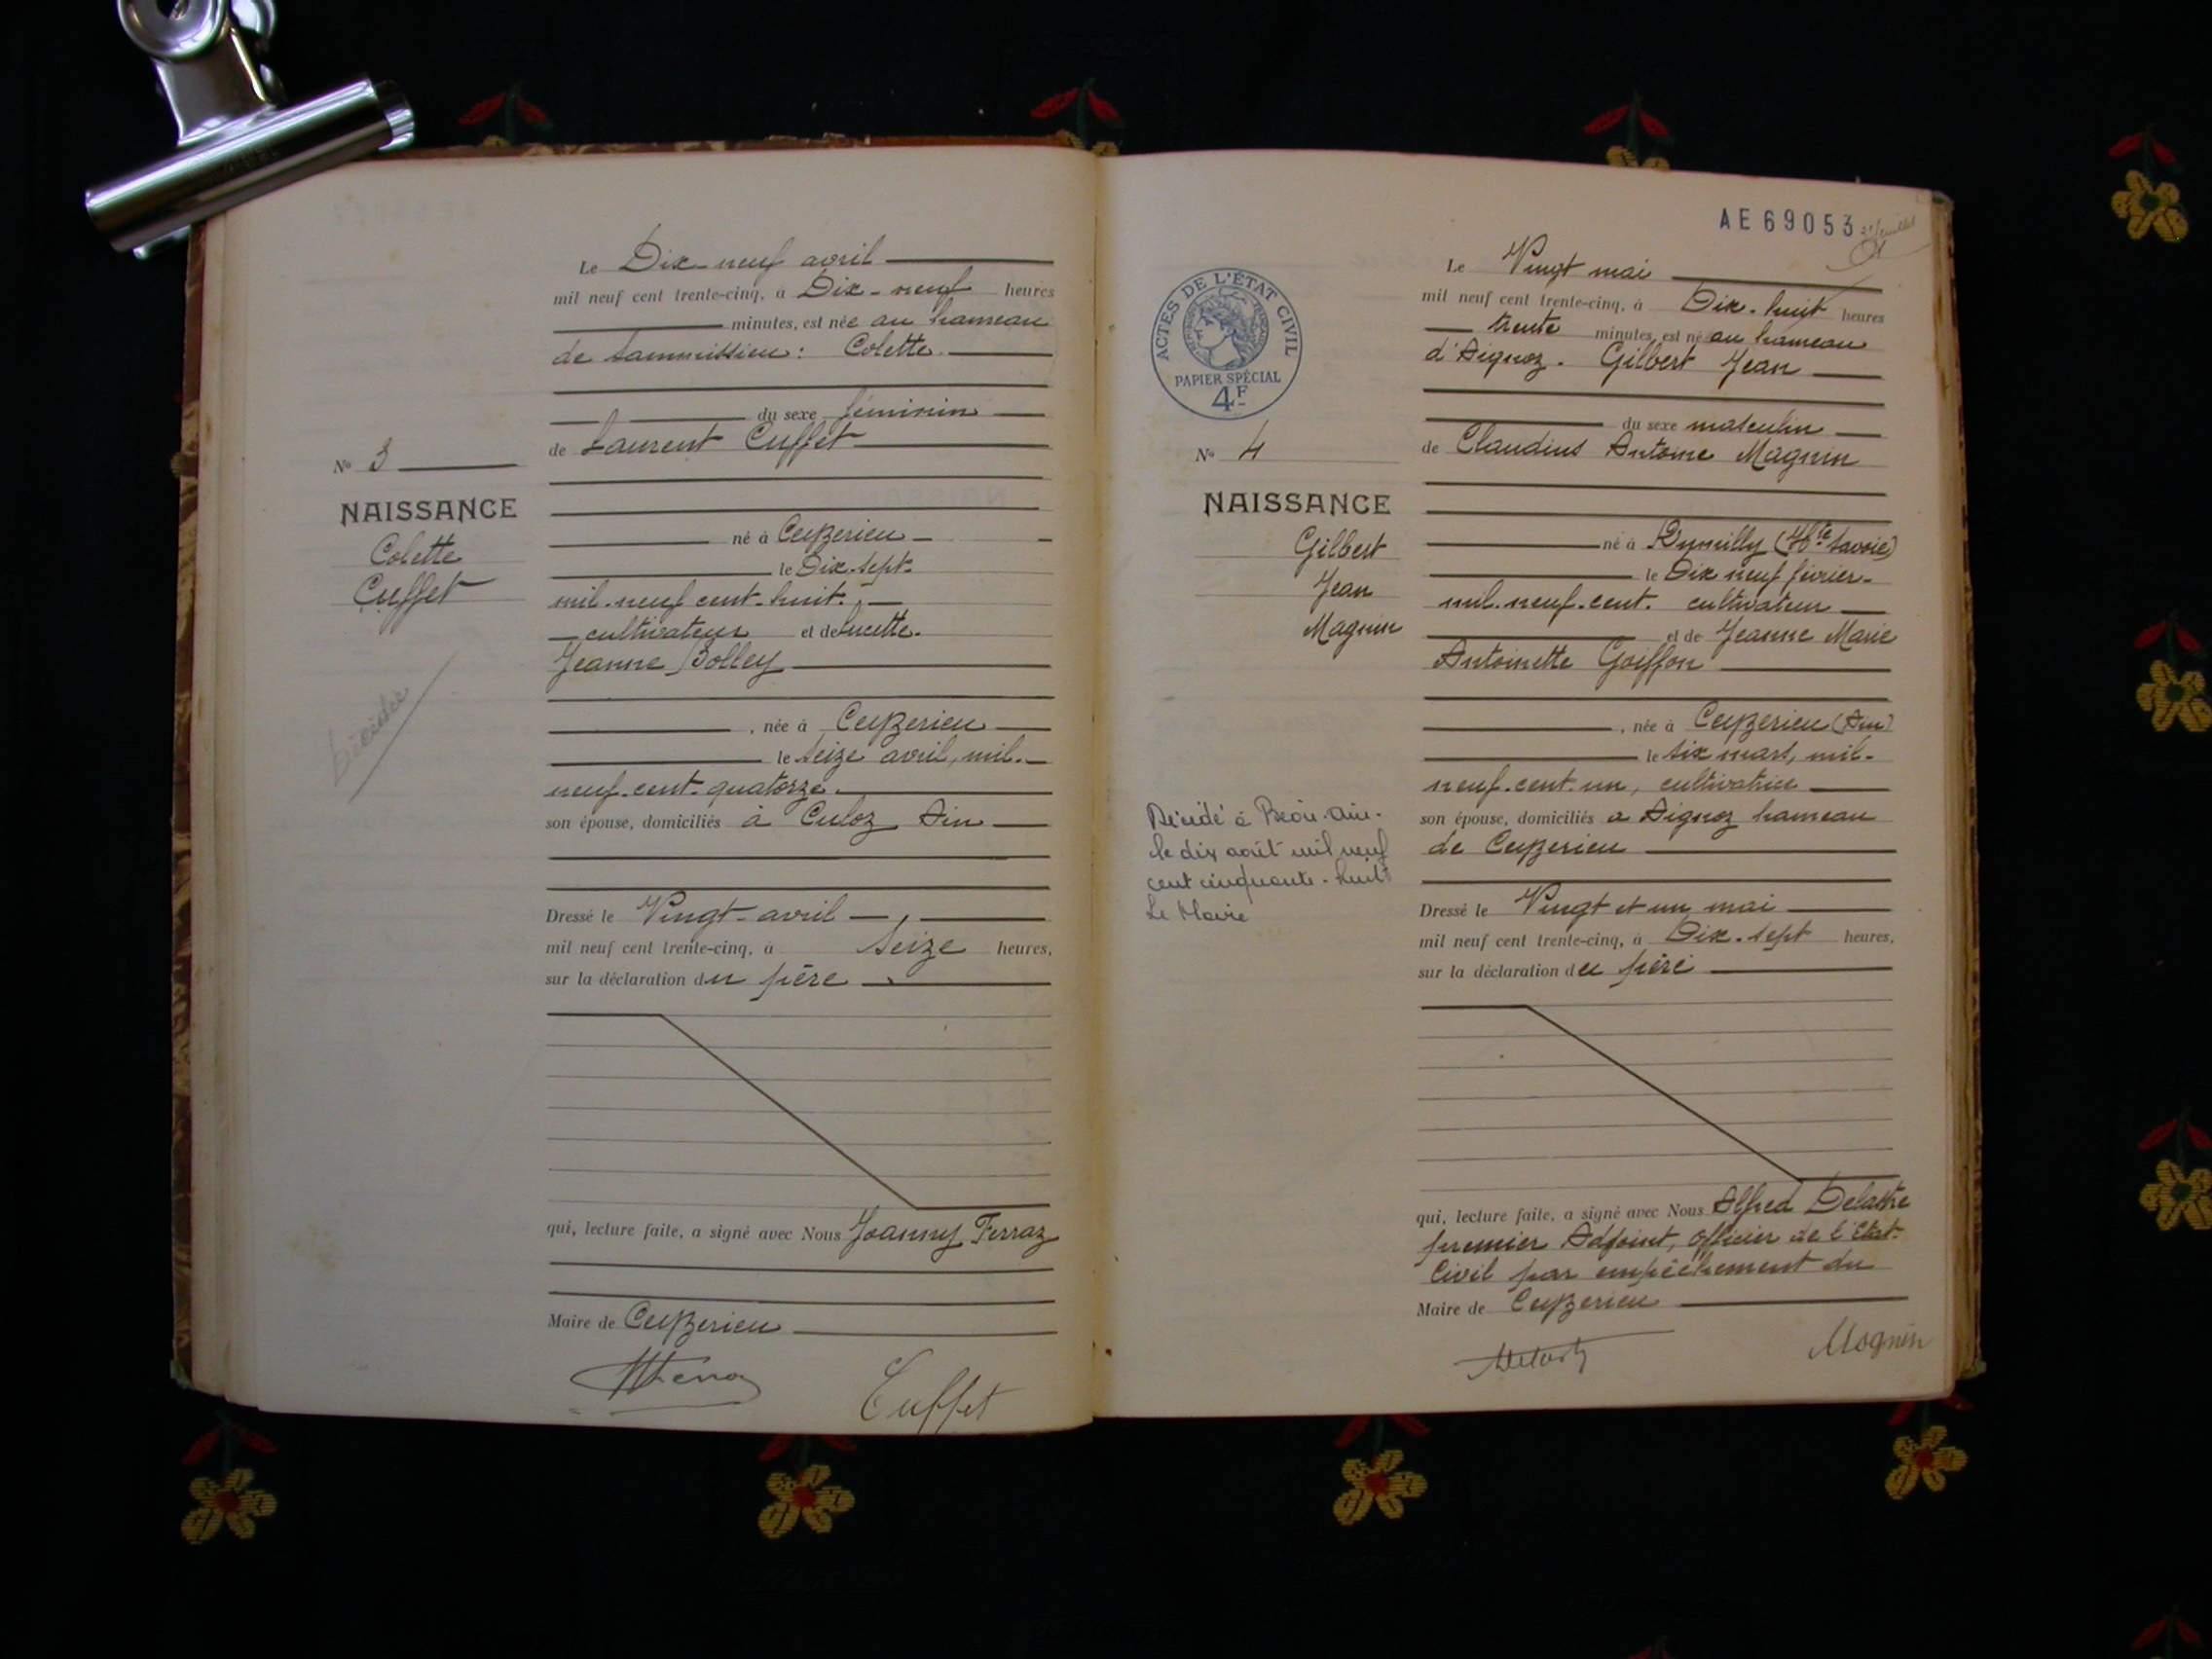 Le Dix-neuf avril
mil neuf cent trente-cinq, à Dix-neuf heures
minutes, est née au hameau
de Sammissieu : Colette
du sexe féminin
de Laurent Cuffet
né à Ceyzerieu
le Dix-sept
mil-neuf cent-huit,
cultivateur et de Lucette
Jeanne Bolley
, née à Ceyzerieu
le seize avril, mil-
neuf-cent-quatorze
son épouse, domiciliés à Culoz Ain
Dressé le Vingt-avril
mil neuf cent trente-cinq, à Seize heures,
sur la déclaration du père
qui, lecture faite, a signé avec Nous Joanny Ferraz
Maire de Ceyzerieu
Cuffet
No 3
NAISSANCE
Colette
Cuffet
AE69053
Le Vingt mai
mil neuf cent trente-cinq, à Dix-huit heures
trente minutes, est né au hameau
d'Aignoz. Gilbert Jean
du sexe masculin
de Claudius Antoine Magnin
né à Rumilly (Hte Savoie)
le Dix neuf février-
mil-neuf-cent. cultivateur
et de Jeanne Marie
Antoinette Goiffon
, née à Ceyzerieu (Ain)
le six mars, mil-
neuf-cent-un, cultivatrice
son épouse, domiciliés a Aignoz hameau
de Ceyzerieu
Dressé le Vingt et un mai
mil neuf cent trente-cinq, à Dix-sept heures,
sur la déclaration du père
qui, lecture faite, a signé avec Nous Alfred
premier Adjoint, officier de l'Etat-
Civil par empêchement du
Maire de Ceyzerieu
Magnin
ACTES DE L'ÉTAT CIVIL
RÉPUBLIQUE FRANÇAISE
PAPIER SPÉCIAL
4F
No 4
NAISSANCE
Gilbert
Jean
Magnin
Décédé à Béon-Ain-
le dix août mil neuf
cent cinquante-huit
Le Maire